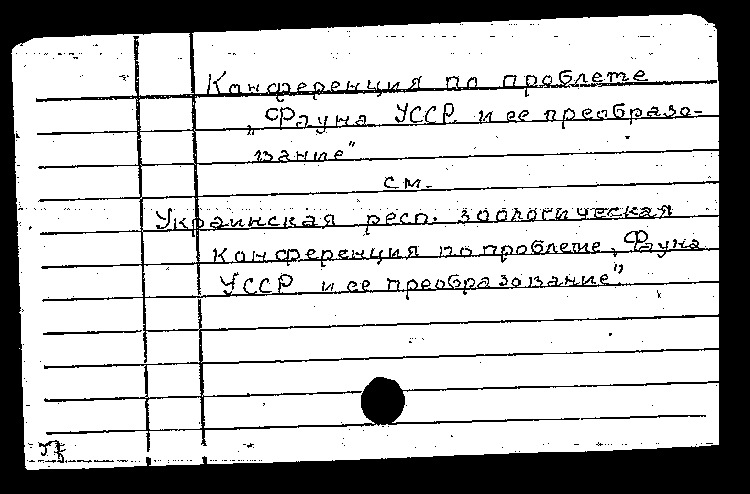 Конференция по проблеме
„Фауна УССР и ее преобразо-
вание"
см.
Украинская респ. зоологическая
конференция по проблеме „Фауна
УССР и ее преобразование".